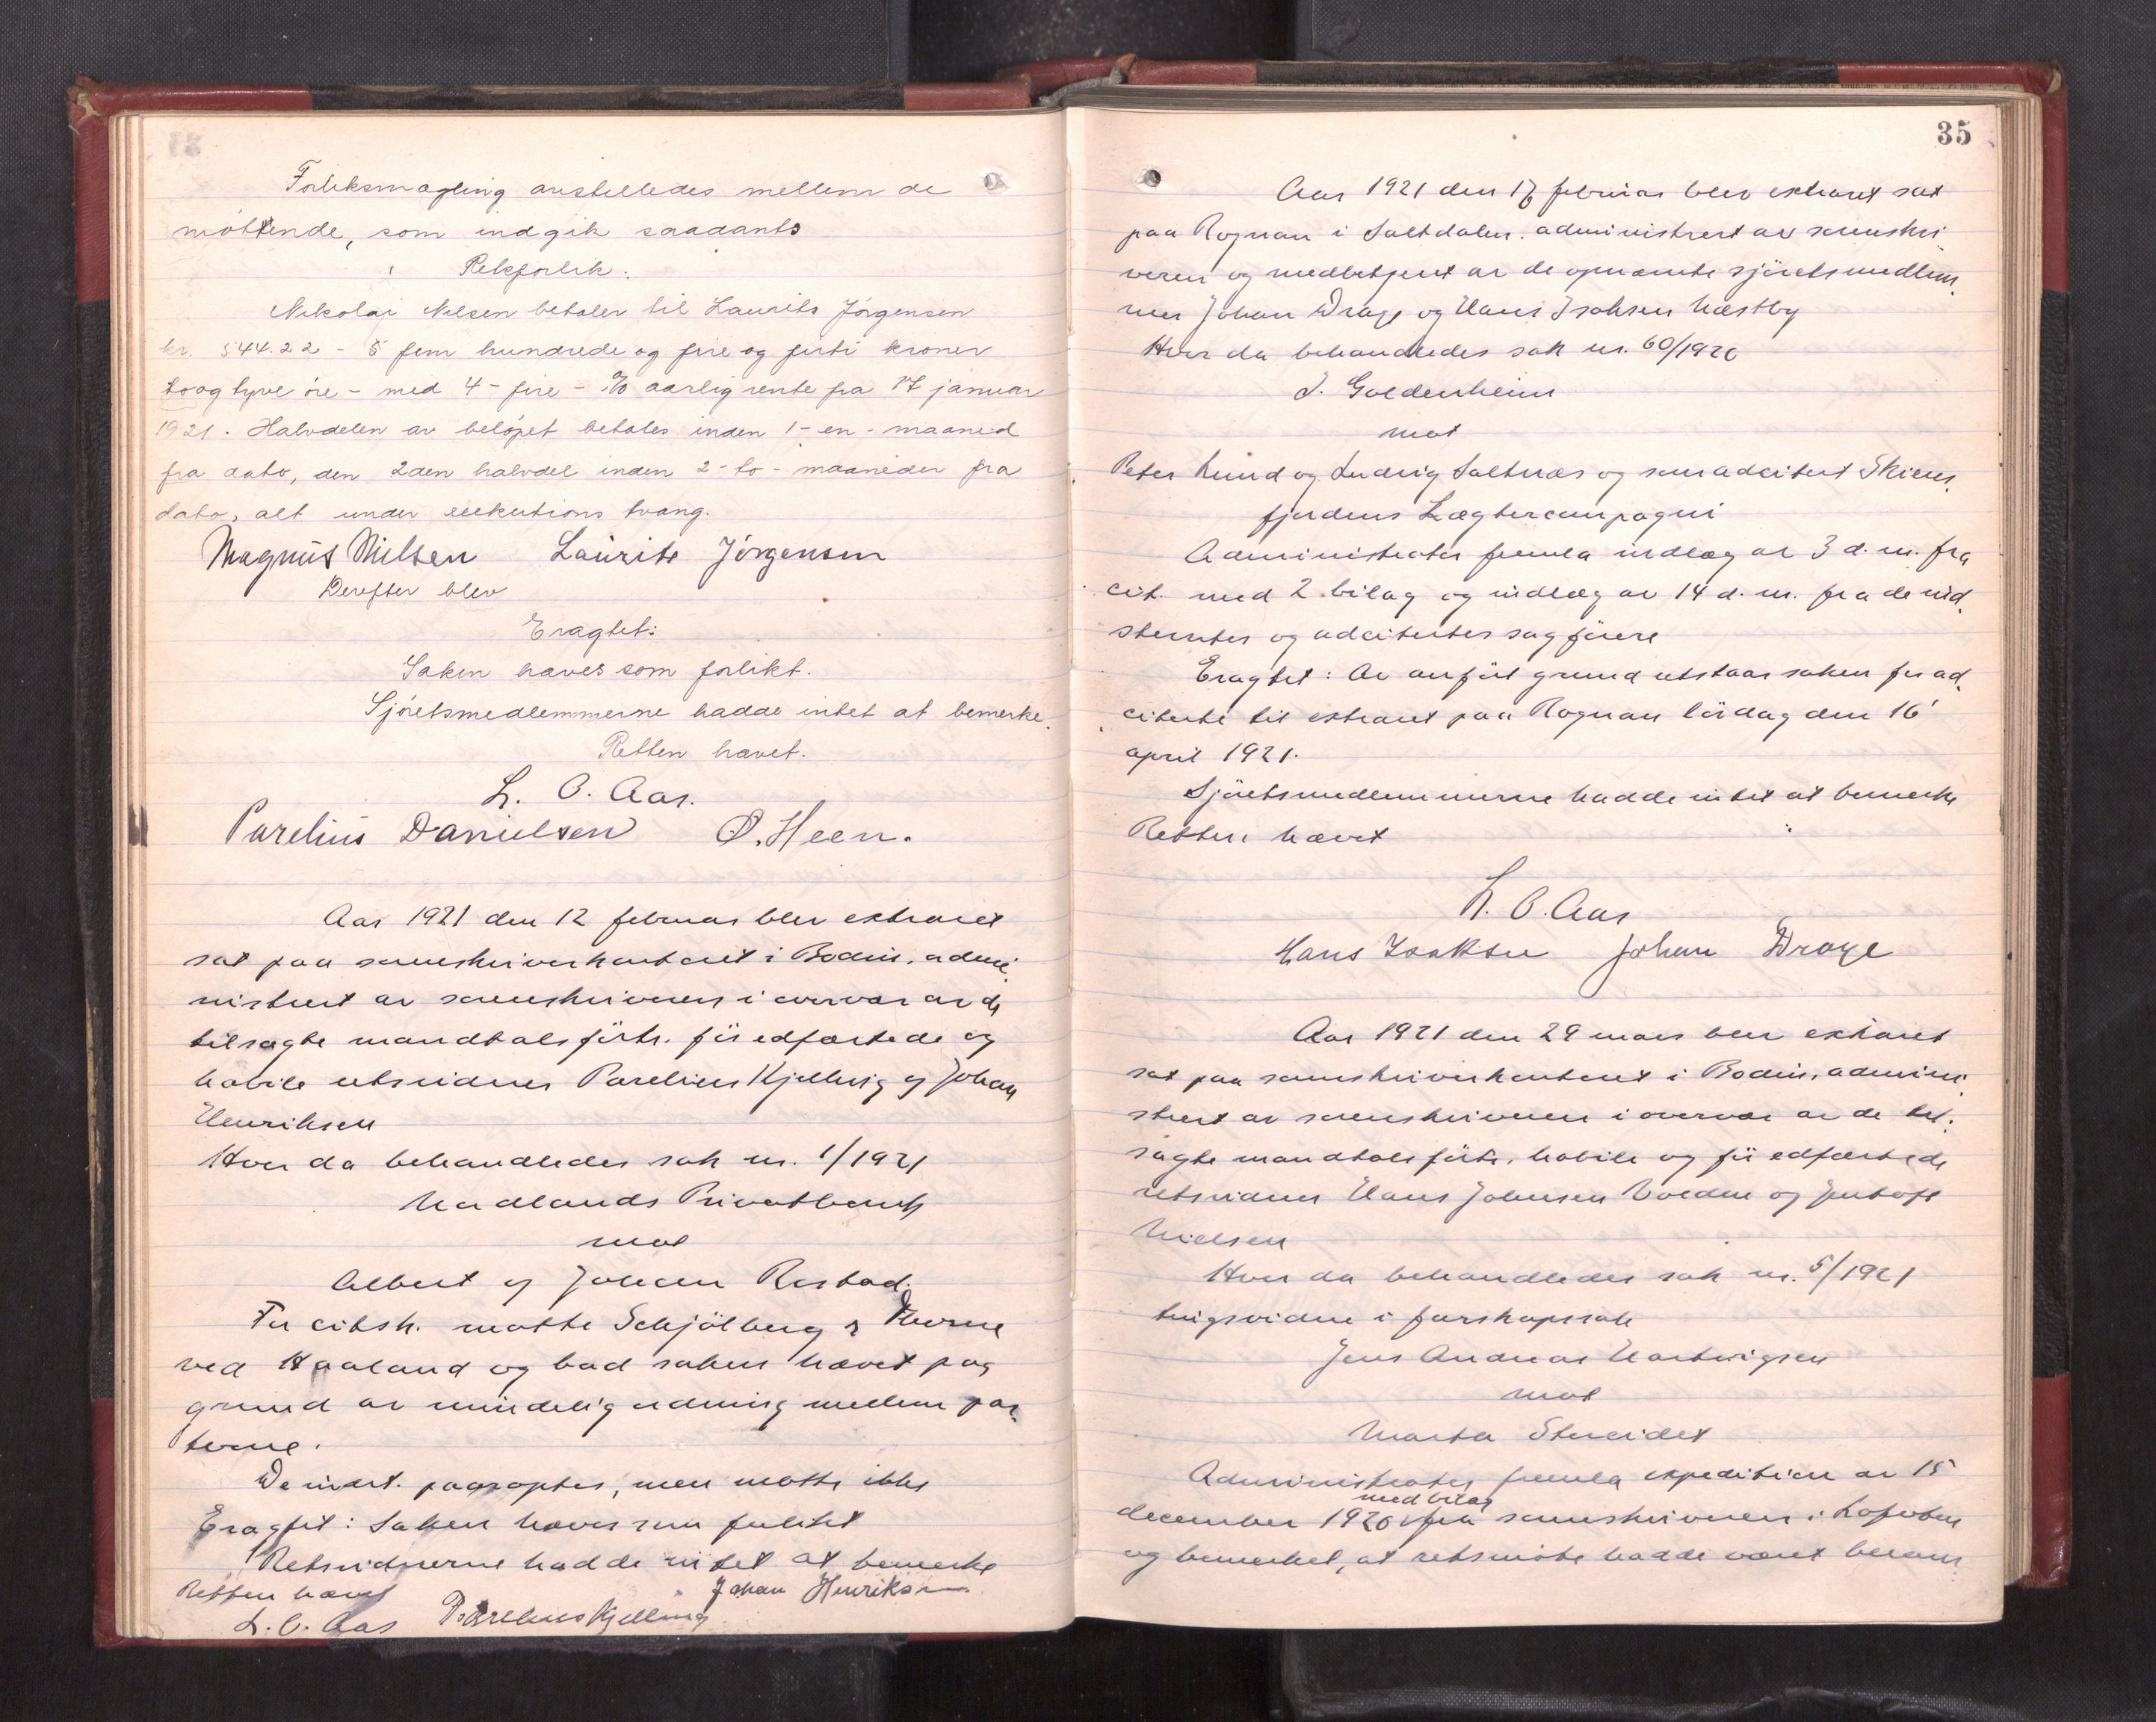 Forliksmægling anstilledes mellem de
møttende, som indgik saadants
Retsforlik:
Nikolai Nilsen betaler til Laurits Jörgensen
kr. 544.22 - 5 fem hundrede og fire og firti kroner
toogtyve öre - med 4 - fire - % aarlig rente fra 17 januar
1921. Halvdelen av belöpet betales inden 1 - en - maaned
fra dato, den 2den halvdel inden 2 - to - maaneder fra
dato, alt under exekutions tvang.
Magnus Nilsen Laurits Jörgensen
Derefter blev
Eragtet:
Saken hæves som forlikt.
Sjöretsmedlemmerne hadde intet at bemerke.
Retten hævet.
L. O. Aas.
Parelius Danielsen O. Heen.
Aar 1921 den 12 februar blev extraret
sat paa sorenskriverkontoret i Bodin, admi
nistrert av sorenskriveren i overvær av de
tilsagte mandtalsförte, för edfæstede og
habile retsvidner Parelius Kjelling og Johan
Henriksen
Hvor da behandledes sak nr. 1/1921
Nordlands Privatbank
mot
Albert og Johan Rostad.
For citsk. møtte Schjölberg &
ved Haaland og bad saken hævet paa
grund av mindelig ordning mellem par
terne.
De indst. paaroptes, men møtte ikke
Eragtet: Saken hæves som forlikt
Retsvidnerne hadde intet at bemerke
Retten hævet Johan Henriksen
L. O. Aas Parelius Kjelling
35
Aar 1921 den 17 februar blev extraret sat
paa Rognan i Saltdalen, administrert av sorenskri
veren og medbetjent av de opnævnte sjöretsmedlem
mer Johan Drage og Hans Isaksen Næstby
Hvor da behandledes sak nr. 60/1920
J. Goldenheim
mot
Peter Lund og Ludvig Saltnes og som adcitert Skiens
fjordens Lægtercompagni
Administrator fremla indlæg av 3 d. m. fra
cit. med 2 bilag og indlæg av 14 d. m. fra de ind
stevntes og adcitertes sagförere
Eragtet: Av anfört grund utstaar saken for ad
citerte til extraret paa Rognan lördag den 16
april 1921.
Sjöretsmedlemmerne hadde intet at bemerke
Retten hævet
L. O. Aas
Hans Isaksen Johan Drage
Aar 1921 den 29 mars blev extraret
sat paa sorenskriverkontoret i Bodin, admini
strert av sorenskriveren i overvær av de til
sagte mandtalsförte, habile og för edfæstede
retsvidner Hans Johnsen Volden og Jentoft
Nielsen
Hvor da behandledes sak nr. 5/1921
tingsvidne i farskapssak
Jens Andreas Hartvigsen
mot
Marta Steridet
Administrator fremla expedition av 15
december 1920 med bilag fra sorenskriveren i Lofoten
og bemerket, at retsmöte hadde været beram